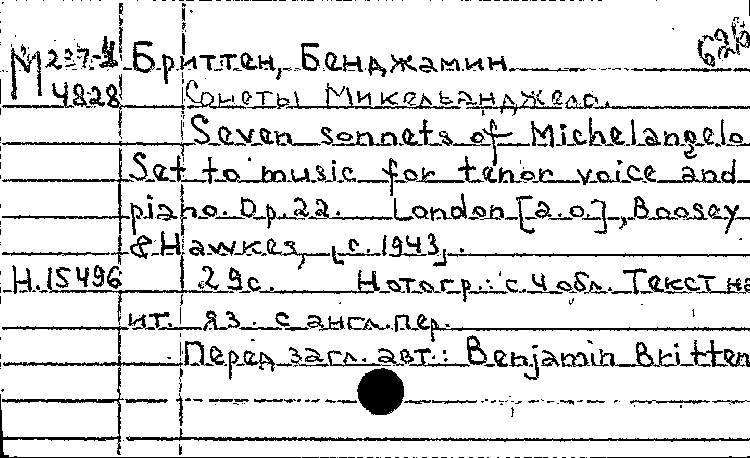 М 237-4 Бриттен, Бенджамин 626
4828 Сонеты Микельанджело.
Seven sonnets of Michelangelo
Set to music for tenor voice and
piano. Op. 22. London [a.o.], Boosey
& Hawkes, [c. 1943].
Н. 15496 29с. Нотогр.: с. 4 обл. Текст на
ит. яз. с англ. пер.
Перед загл. авт.: Benjamin Britten